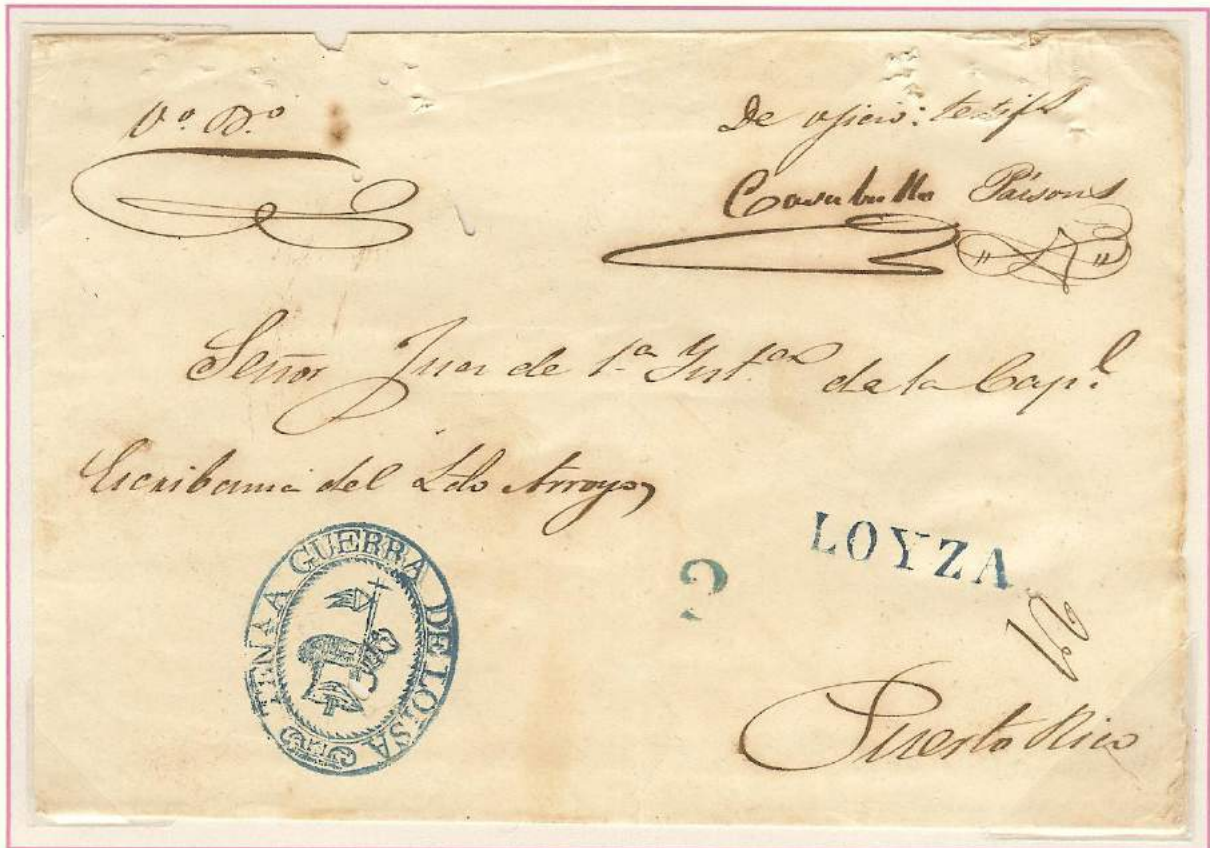 Vo. Bo.
De oficio: testifs
Casabulla Paisons
Señor Juez de 1.a Inst.a de la Cap.l
Escribania del Ldo Arroyo,
TENA A GUERRA DE LOISA
LOYZA
2
Puerto Rico